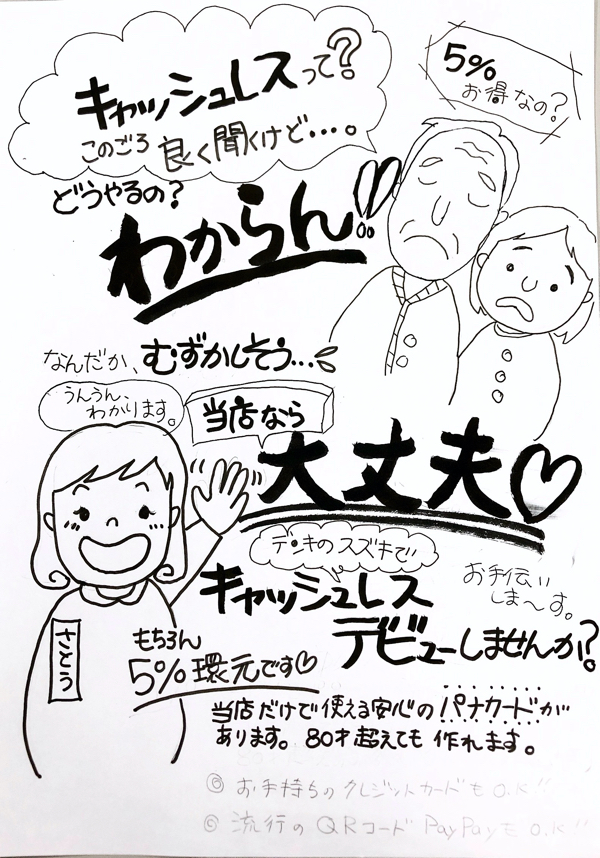 キャッシュレスって?
このごろ良く聞くけど…。
5%
お得なの?
どうやるの?
わからん!!
なんだか、むずかしそう…
うんうん、
わかります。
当店なら
大丈夫♡
デンキのスズキで
キャッシュレス
デビューしませんか?
お手伝い
しま〜す。
さとう
もちろん
5%還元です♡
当店だけで使える安心のパナカードが
あります。80才超えても作れます。
◎お手持ちのクレジットカードもO.K!!
◎流行のQRコードPayPayもO.K!!